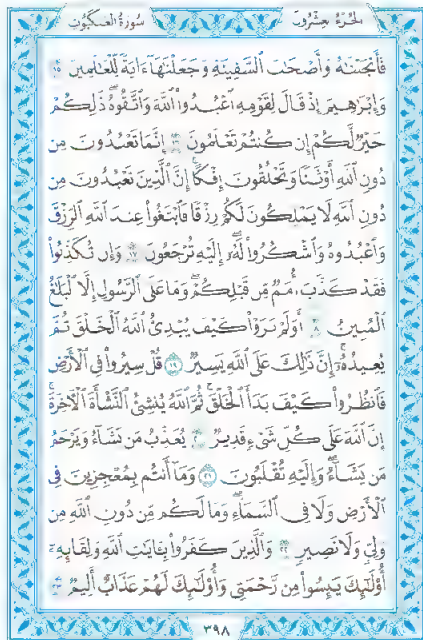 الجزء العشرون
سورة العنكبوت
فَأَنجَيْنَٰهُ وَأَصْحَٰبَ ٱلسَّفِينَةِ وَجَعَلْنَٰهَآ ءَايَةً لِّلْعَٰلَمِينَ ١٥
وَإِبْرَٰهِيمَ إِذْ قَالَ لِقَوْمِهِ ٱعْبُدُوا۟ ٱللَّهَ وَٱتَّقُوهُ ۖ ذَٰلِكُمْ
خَيْرٌ لَّكُمْ إِن كُنتُمْ تَعْلَمُونَ ١٦ إِنَّمَا تَعْبُدُونَ مِن
دُونِ ٱللَّهِ أَوْثَٰنًا وَتَخْلُقُونَ إِفْكًا ۚ إِنَّ ٱلَّذِينَ تَعْبُدُونَ مِن
دُونِ ٱللَّهِ لَا يَمْلِكُونَ لَكُمْ رِزْقًا فَٱبْتَغُوا۟ عِندَ ٱللَّهِ ٱلرِّزْقَ
وَٱعْبُدُوهُ وَٱشْكُرُوا۟ لَهُۥٓ ۖ إِلَيْهِ تُرْجَعُونَ ١٧ وَإِن تُكَذِّبُوا۟
فَقَدْ كَذَّبَ أُمَمٌ مِّن قَبْلِكُمْ ۖ وَمَا عَلَى ٱلرَّسُولِ إِلَّا ٱلْبَلَٰغُ
ٱلْمُبِينُ ١٨ أَوَلَمْ يَرَوْا۟ كَيْفَ يُبْدِئُ ٱللَّهُ ٱلْخَلْقَ ثُمَّ
يُعِيدُهُۥٓ ۚ إِنَّ ذَٰلِكَ عَلَى ٱللَّهِ يَسِيرٌ ١٩ قُلْ سِيرُوا۟ فِى ٱلْأَرْضِ
فَٱنظُرُوا۟ كَيْفَ بَدَأَ ٱلْخَلْقَ ۚ ثُمَّ ٱللَّهُ يُنشِئُ ٱلنَّشْأَةَ ٱلْءَاخِرَةَ ۚ
إِنَّ ٱللَّهَ عَلَىٰ كُلِّ شَىْءٍ قَدِيرٌ ٢٠ يُعَذِّبُ مَن يَشَآءُ وَيَرْحَمُ
مَن يَشَآءُ ۖ وَإِلَيْهِ تُقْلَبُونَ ٢١ وَمَآ أَنتُم بِمُعْجِزِينَ فِى
ٱلْأَرْضِ وَلَا فِى ٱلسَّمَآءِ ۖ وَمَا لَكُم مِّن دُونِ ٱللَّهِ مِن
وَلِىٍّ وَلَا نَصِيرٍ ٢٢ وَٱلَّذِينَ كَفَرُوا۟ بِـَٔايَٰتِ ٱللَّهِ وَلِقَآئِهِۦٓ
أُو۟لَٰٓئِكَ يَئِسُوا۟ مِن رَّحْمَتِى وَأُو۟لَٰٓئِكَ لَهُمْ عَذَابٌ أَلِيمٌ ٢٣
٣٩٨